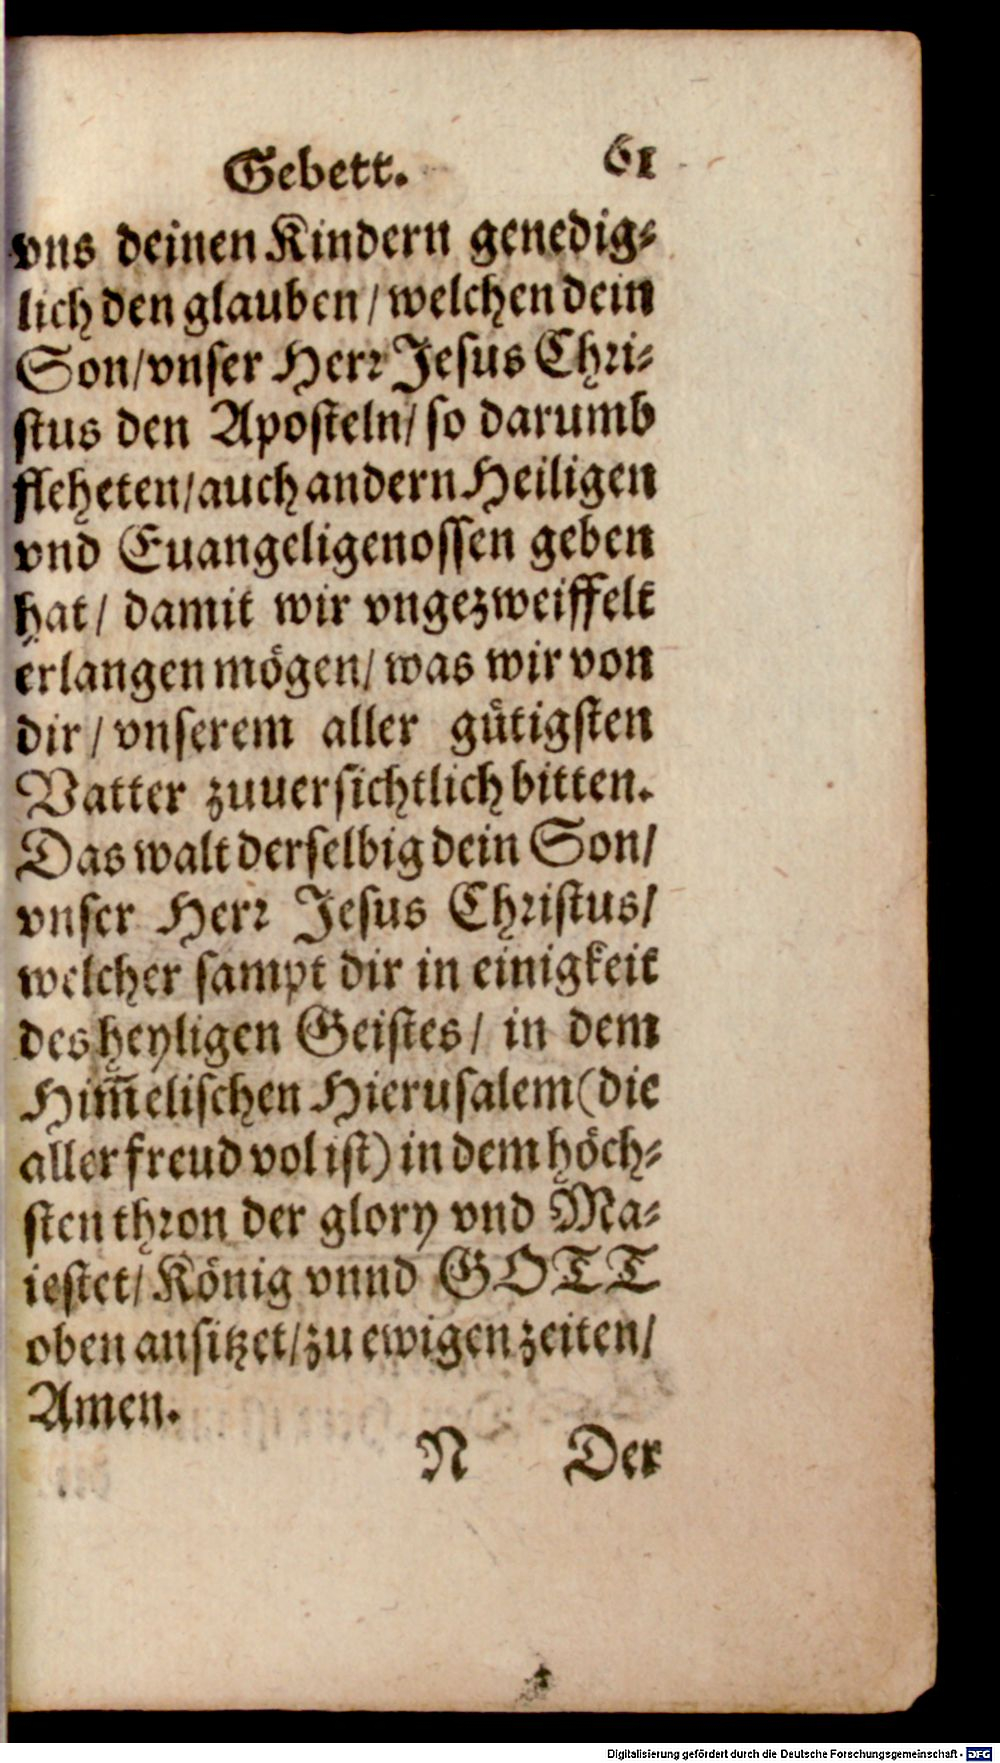 Gebett. 61
vns deinen Kindern genedig⸗
lich den glauben / welchen dein
Son / vnser Herr Jesus Chri⸗
stus den Aposteln / so darumb
fleheten / auch andern Heiligen
vnd Euangeligenossen geben
hat / damit wir vngezweiffelt
erlangen mögen / was wir von
dir / vnserem aller gütigsten
Vatter zuuersichtlich bitten.
Das walt derselbig dein Son /
vnser Herr Jesus Christus /
welcher sampt dir in einigkeit
des heyligen Geistes / in dem
Him̅elischen Hierusalem (die
aller freud vol ist) in dem höch⸗
sten thron der glory vnd Ma⸗
iestet / König vnnd GOTT
oben ansitzet / zu ewigen zeiten /
Amen.
N Der
Digitalisierung gefördert durch die Deutsche Forschungsgemeinschaft - DFG